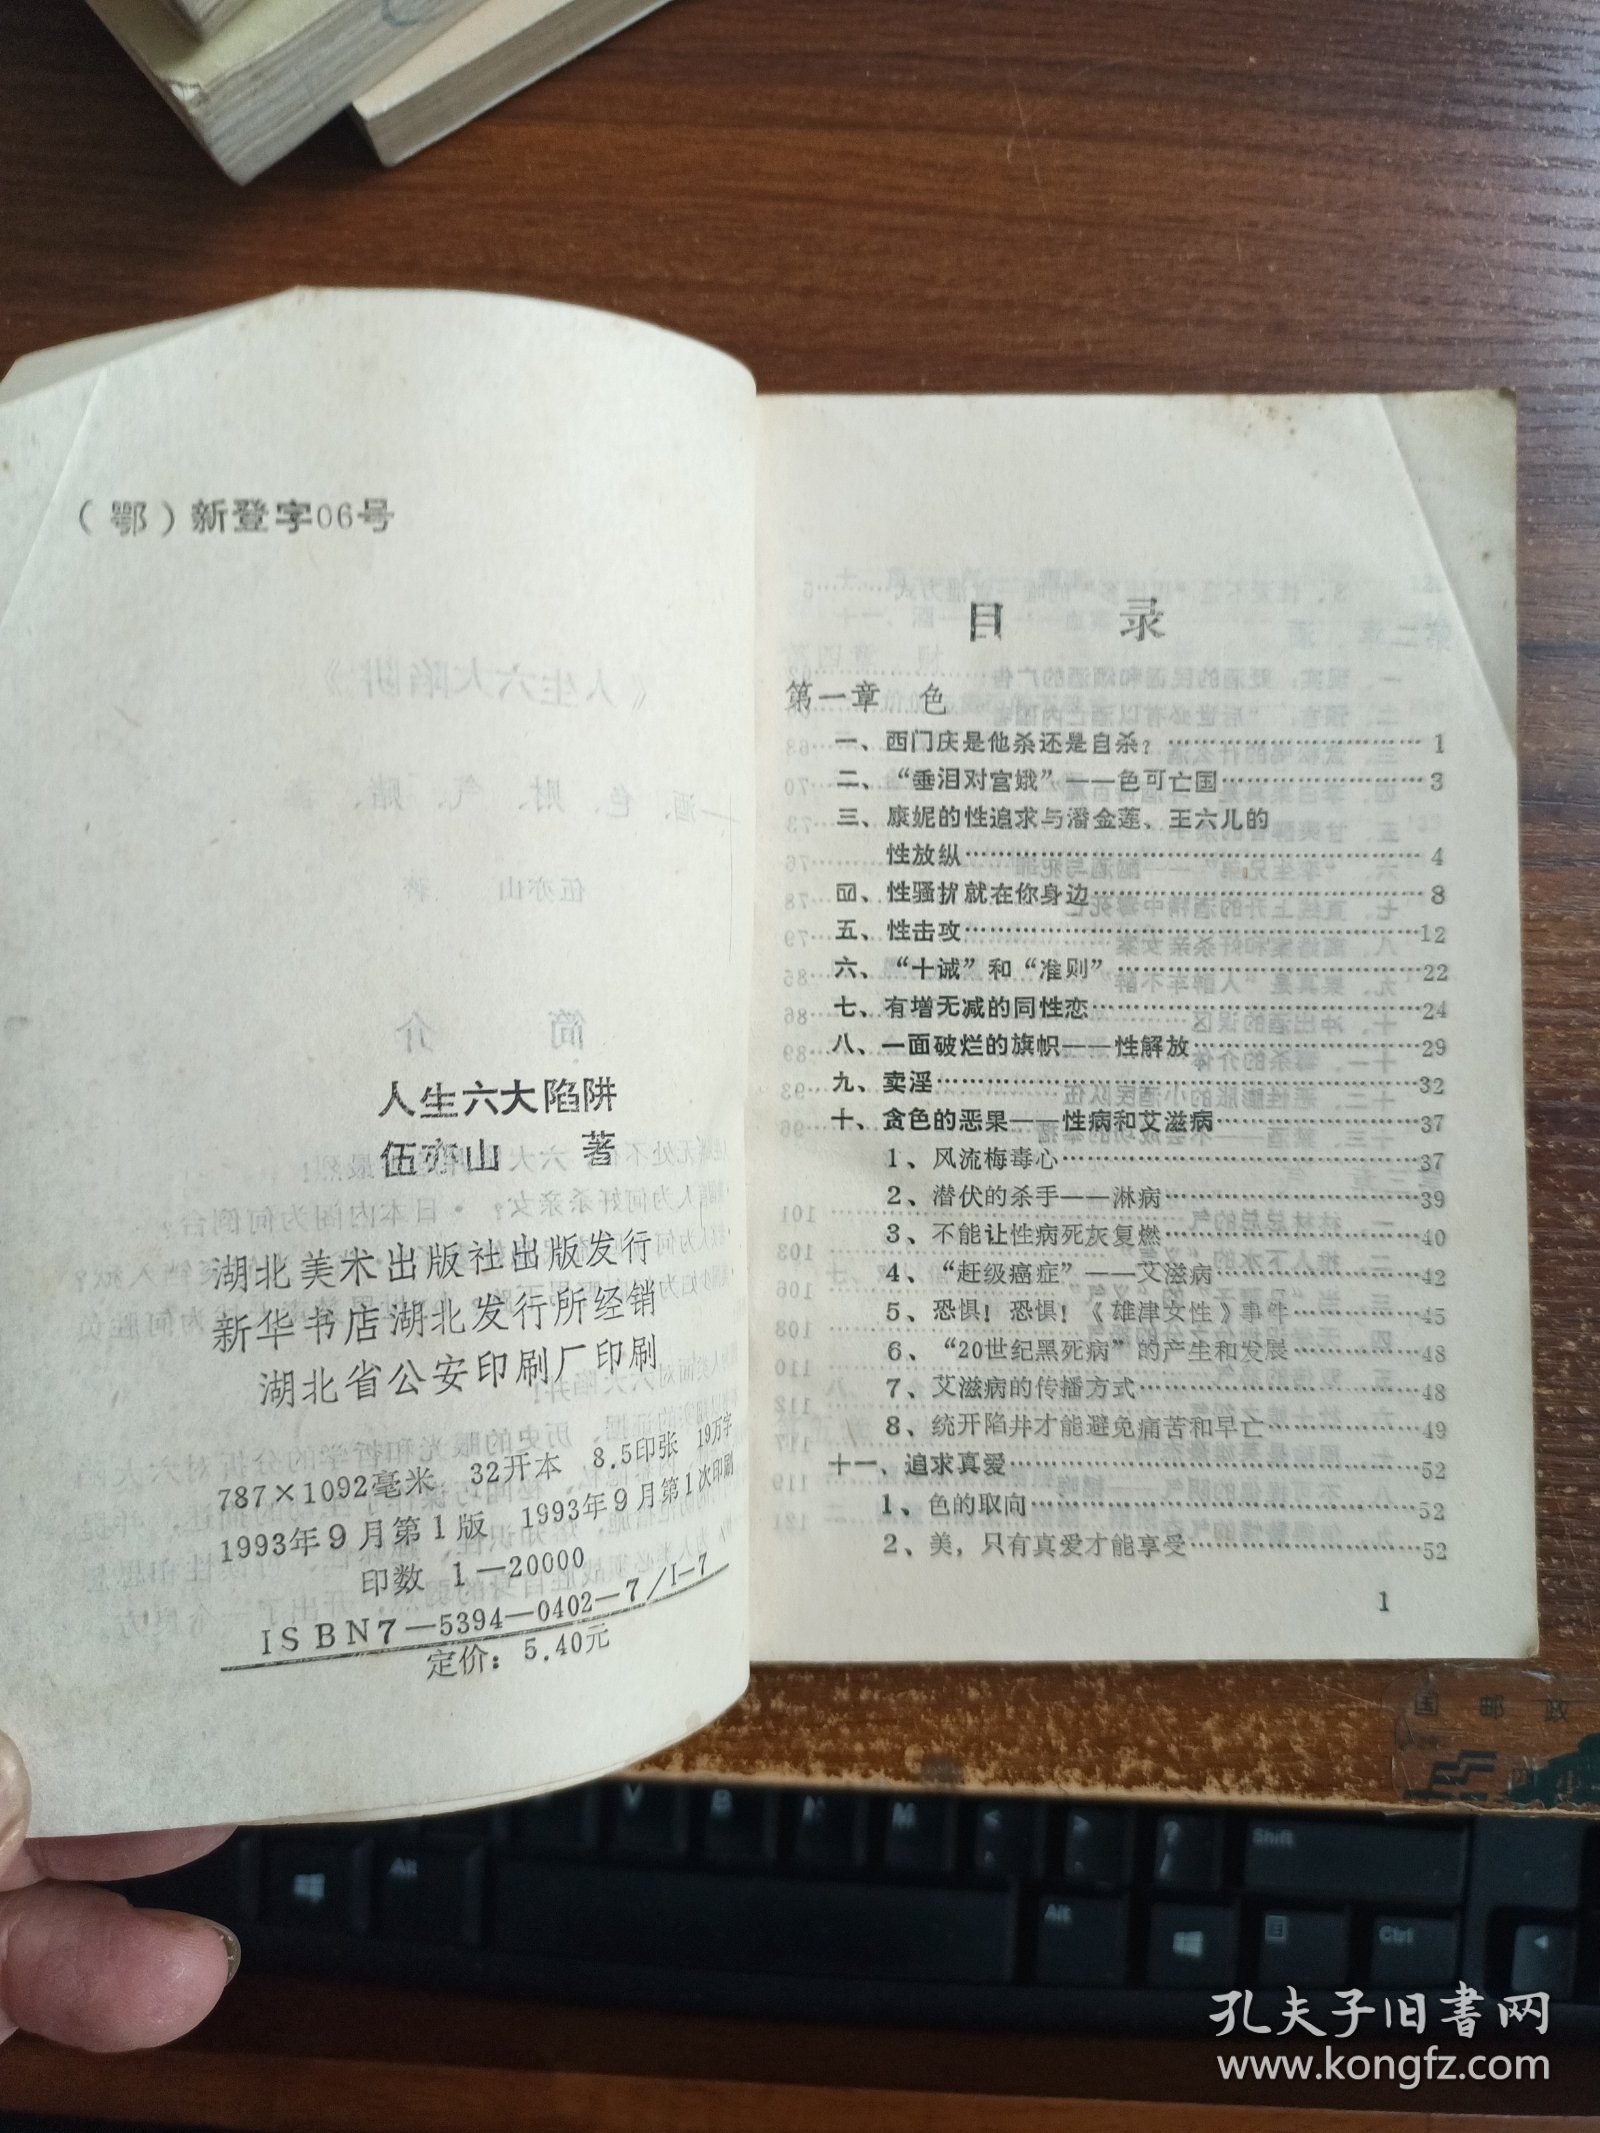 （鄂）新登字06号
人生六大陷阱
伍亦山 著
湖北美术出版社出版发行
新华书店湖北发行所经销
湖北省公安印刷厂印刷
787×1092毫米 32开本 8.5印张 19万字
1993年9月第1版 1993年9月第1次印刷
印数 1—20000
ISBN7—5394—0402—7/I—7
定价：5.40元
目 录
第一章 色
一、西门庆是他杀还是自杀？…………………………1
二、“垂泪对宫娥”——色可亡国……………………3
三、康妮的性追求与潘金莲、王六儿的
性放纵………………………………………………4
四、性骚扰就在你身边…………………………………8
五、性击攻………………………………………………12
六、“十诫”和“准则”………………………………22
七、有增无减的同性恋…………………………………24
八、一面破烂的旗帜——性解放………………………29
九、卖淫…………………………………………………32
十、贪色的恶果——性病和艾滋病……………………37
1、风流梅毒心…………………………………………37
2、潜伏的杀手——淋病………………………………39
3、不能让性病死灰复燃………………………………40
4、“赶级癌症”——艾滋病…………………………42
5、恐惧！恐惧！《雄津女性》事件…………………45
6、“20世纪黑死病”的产生和发展…………………48
7、艾滋病的传播方式…………………………………48
8、统开陷井才能避免痛苦和早亡……………………49
十一、追求真爱…………………………………………52
1、色的取向……………………………………………52
2、美，只有真爱才能享受……………………………52
1
国邮政
V
B
N
M
<
>
?
/
Shift
Alt
Alt
Ctrl
孔夫子旧书网
www.kongfz.com